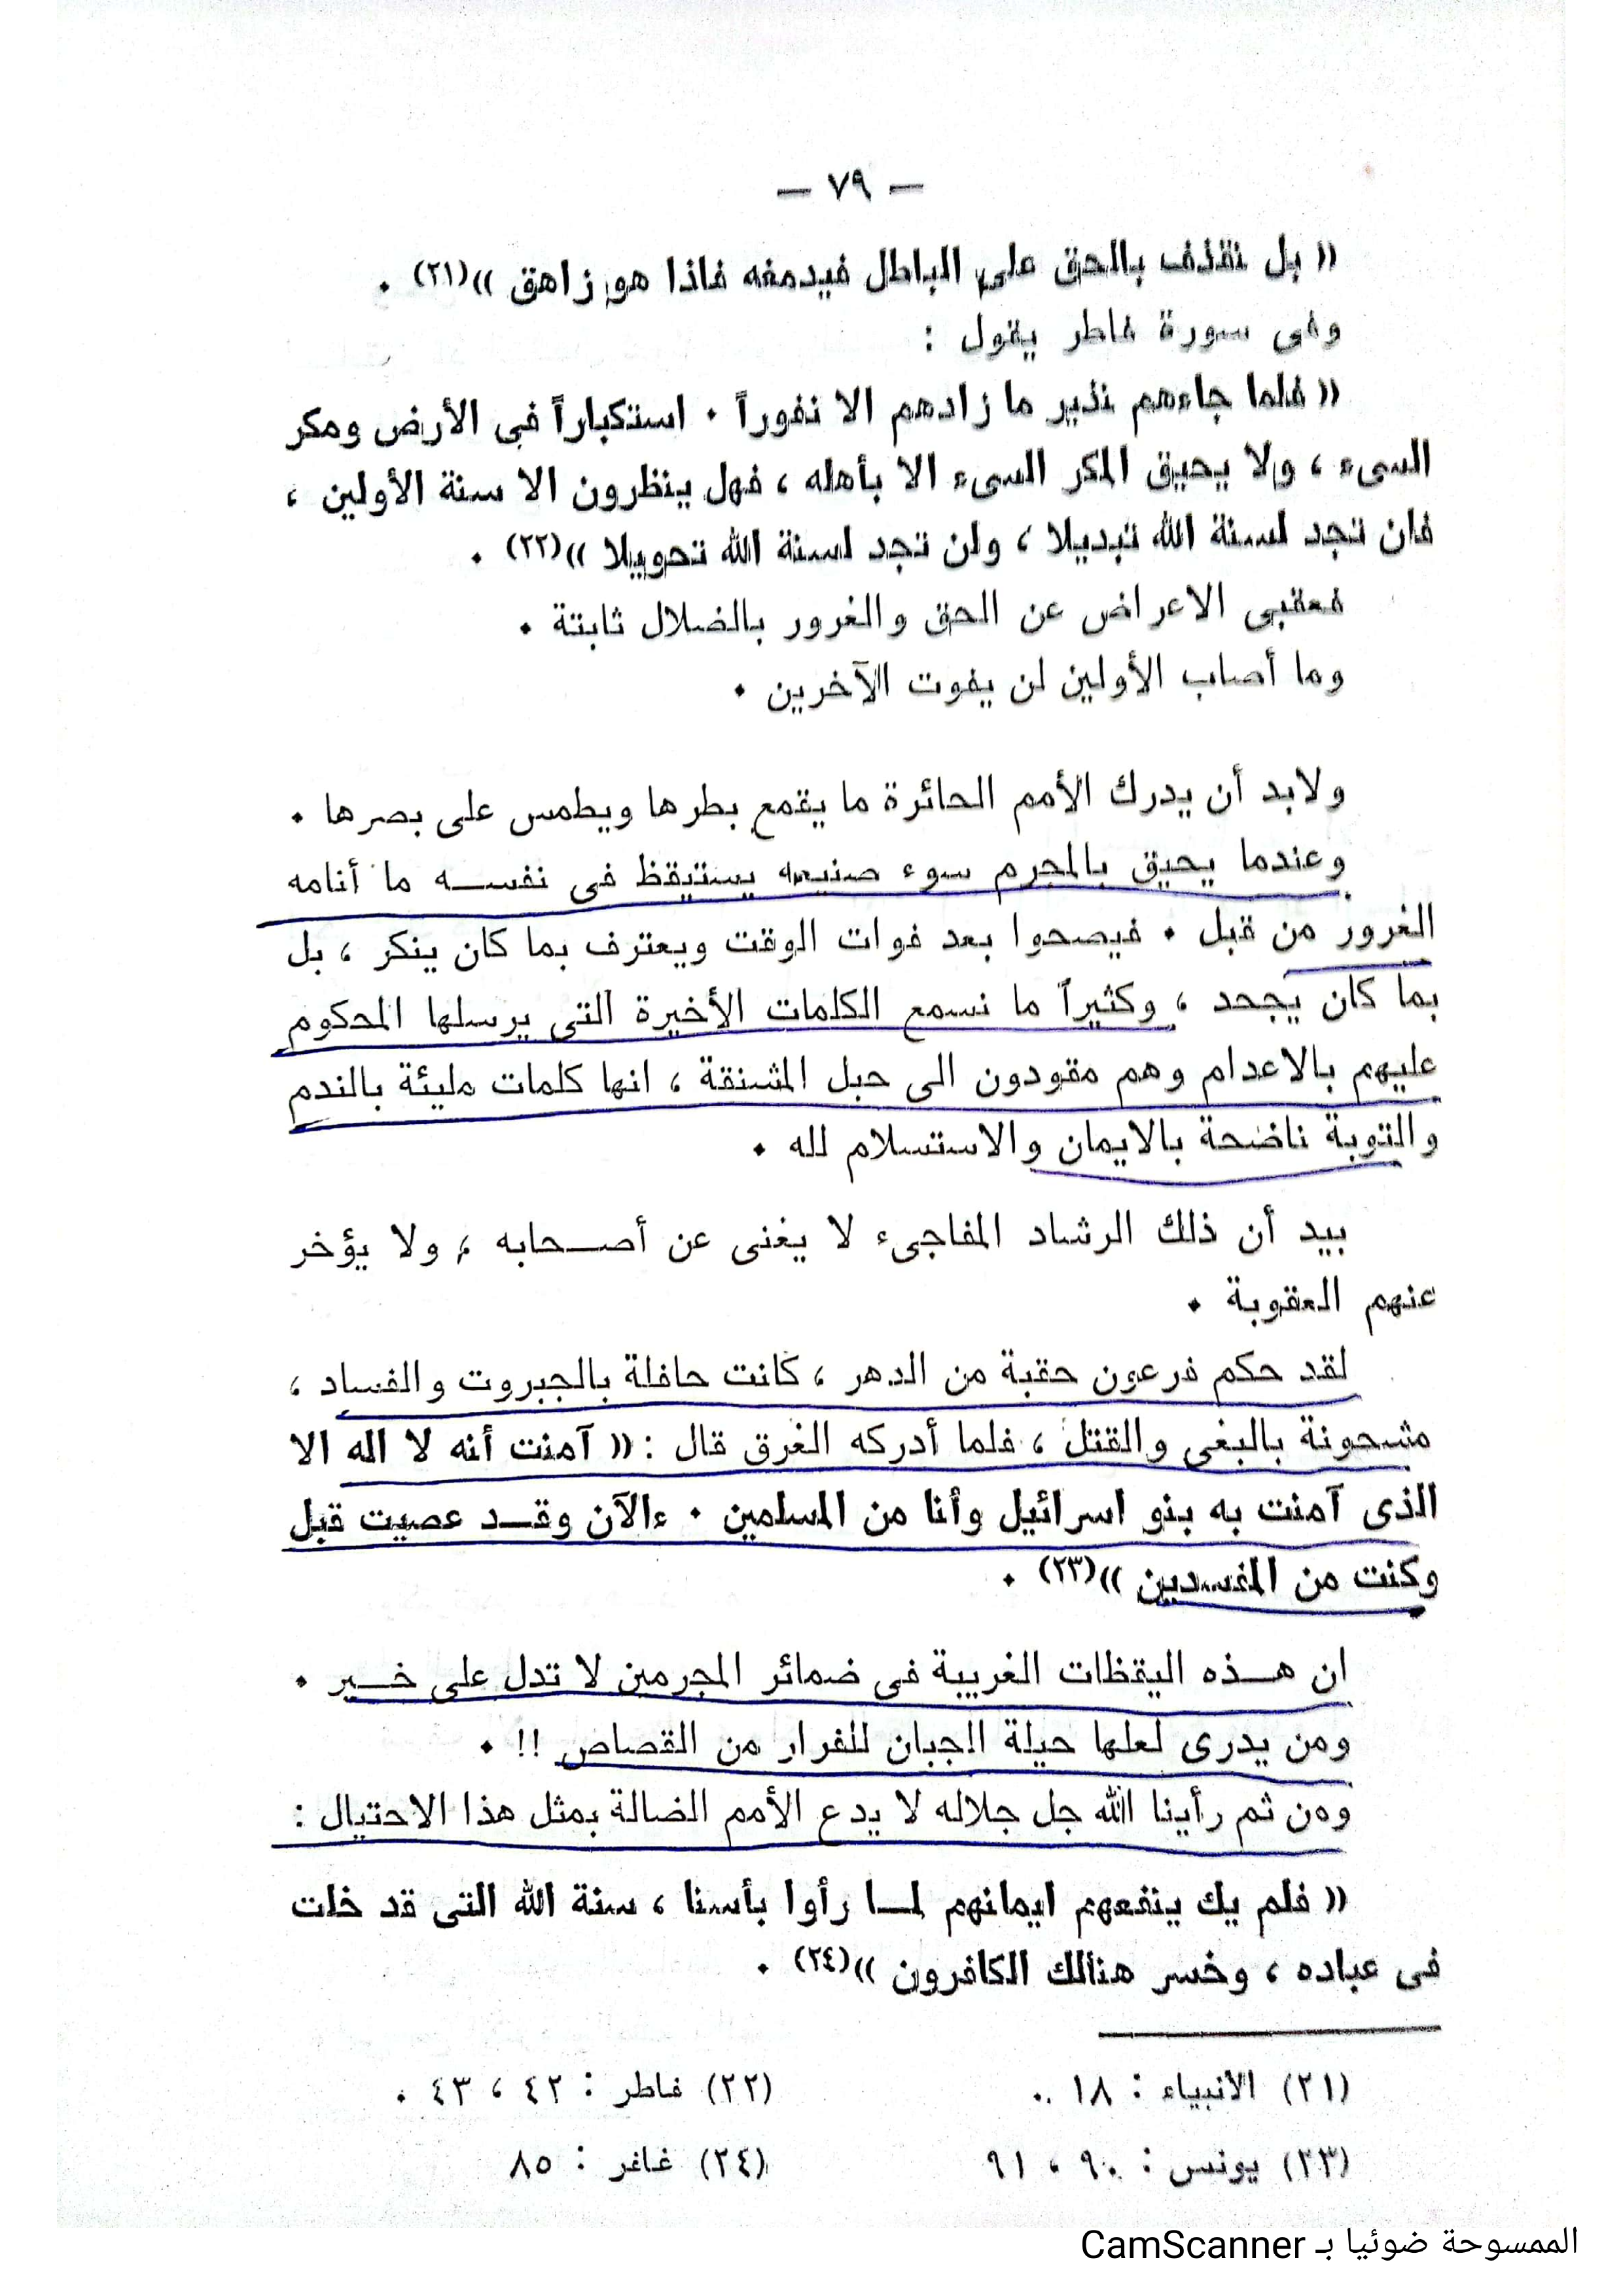 — ٧٩ —
« بل نقذف بالحق على الباطل فيدمغه فاذا هو زاهق »(٢١) .
وفى سورة فاطر يقول :
« فلما جاءهم نذير ما زادهم الا نفوراً . استكباراً فى الأرض ومكر
السىء ، ولا يحيق المكر السىء الا بأهله ، فهل ينظرون الا سنة الأولين ،
فان تجد لسنة الله تبديلا ، ولن تجد لسنة الله تحويلا »(٢٢) .
فعقبى الاعراض عن الحق والغرور بالضلال ثابتة .
وما أصاب الأولين لن يفوت الآخرين .
ولابد أن يدرك الأمم الحائرة ما يقمع بطرها ويطمس على بصرها .
وعندما يحيق بالمجرم سوء صنيعه يستيقظ فى نفسه ما أنامه
الغرور من قبل . فيصحوا بعد فوات الوقت ويعترف بما كان ينكر ، بل
بما كان يجحد ، وكثيراً ما نسمع الكلمات الأخيرة التى يرسلها المحكوم
عليهم بالاعدام وهم مقودون الى حبل المشنقة ، انها كلمات مليئة بالندم
والتوبة ناضحة بالايمان والاستسلام لله .
بيد أن ذلك الرشاد المفاجىء لا يغنى عن أصحابه ، ولا يؤخر
عنهم العقوبة .
لقد حكم فرعون حقبة من الدهر ، كانت حافلة بالجبروت والفساد ،
مشحونة بالبغى والقتل ، فلما أدركه الغرق قال : « آمنت أنه لا اله الا
الذى آمنت به بنو اسرائيل وأنا من المسلمين . ءالآن وقد عصيت قبل
وكنت من المفسدين »(٢٣) .
ان هذه اليقظات الغريبة فى ضمائر المجرمين لا تدل على خير .
ومن يدرى لعلها حيلة الجبان للفرار من القصاص !! .
ومن ثم رأينا الله جل جلاله لا يدع الأمم الضالة بمثل هذا الاحتيال :
« فلم يك ينفعهم ايمانهم لما رأوا بأسنا ، سنة الله التى قد خلت
فى عباده ، وخسر هنالك الكافرون »(٢٤) .
(٢١) الانبياء : ١٨ .. (٢٢) فاطر : ٤٢ ، ٤٣ .
(٢٣) يونس : ٩٠ ، ٩١ (٢٤) غافر : ٨٥
الممسوحة ضوئيا بـ CamScanner